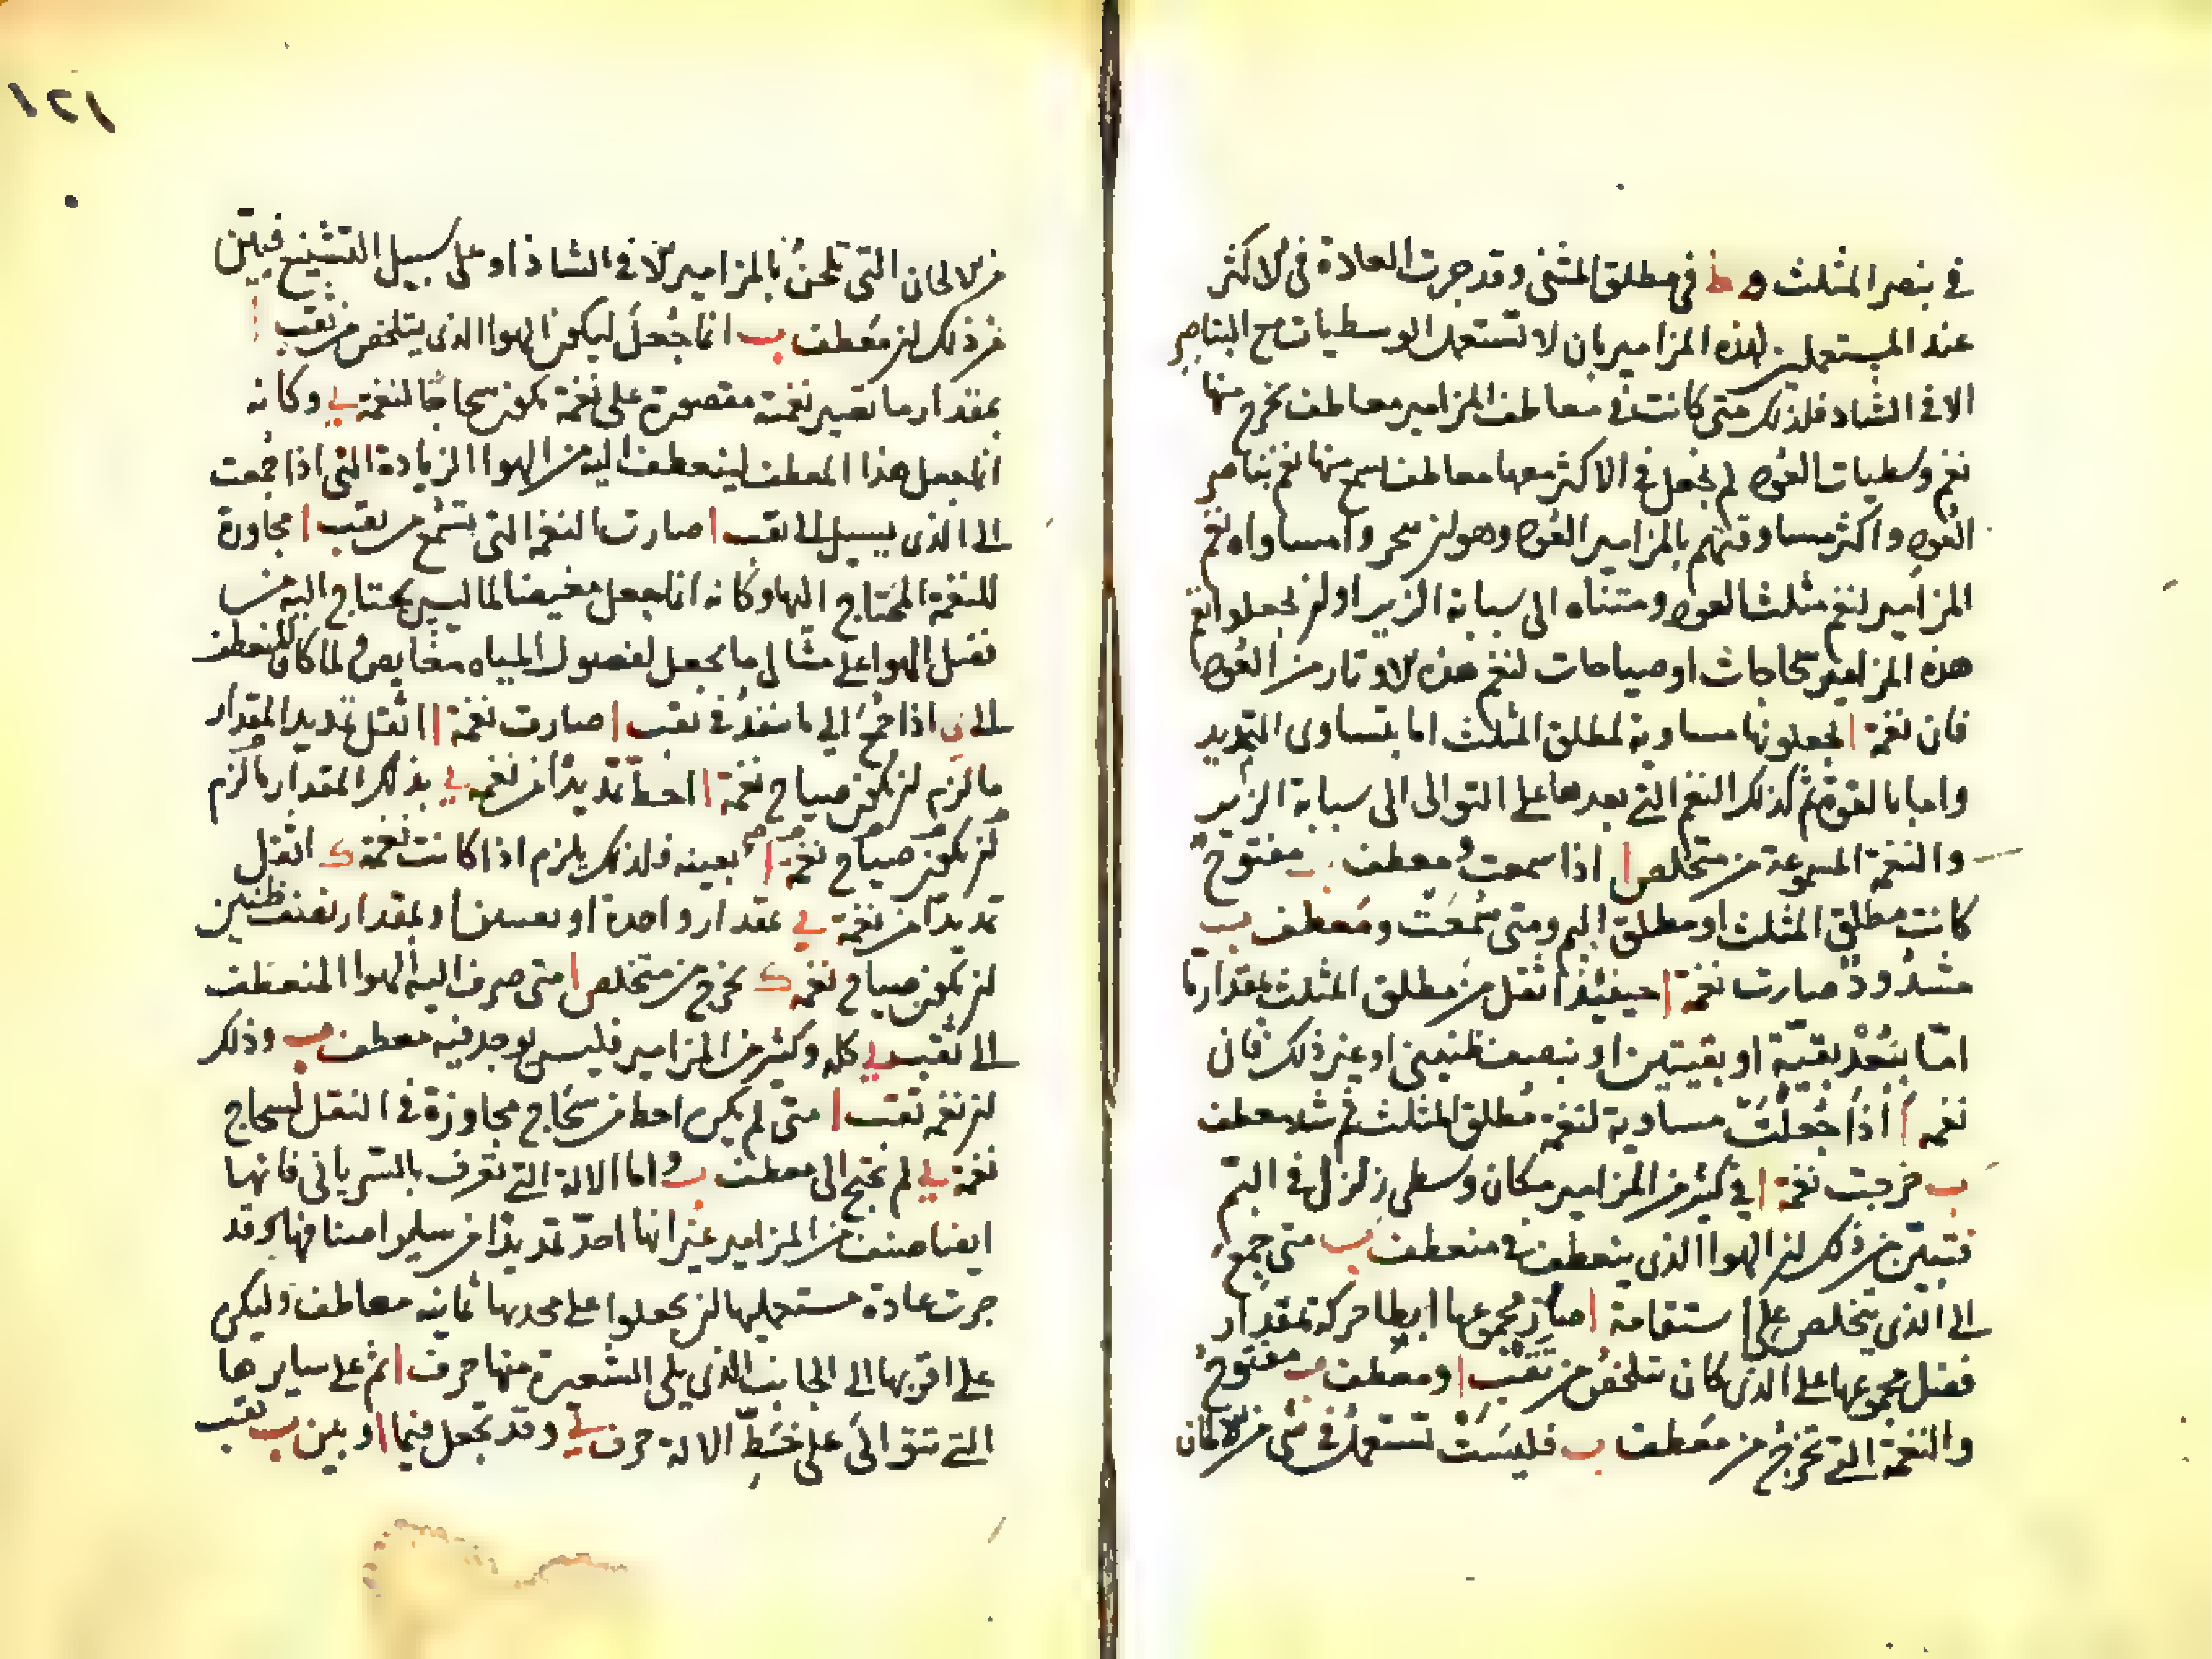 في بنصر المثلث و ط في مطلق المثنى وقد جرت العادة في الاكثر
عند المستعملين لهذه المزامير بان لا تستعمل الوسطيات مع البناصر
الا في الشاذ فلذلك متى كانت في معاطف المزامير معاطف يخرج منها
نغم وسطيات العود لم يجعل في الاكثر معها معاطف يسمع منها نغم بناصر
العود واكثر مساوقتهم بالمزامير العود وهو ان يتحروا مساواه نغم
المزامير لنغم مثلث العود ومثناه الى سبابة الزير او ان يجعلوا نغم
هذه المزامير سجاجات او صياحات لنغم هذه الاوتار من العود
فان نغمة ا يجعلونها مساوية لمطلق المثلث اما بتساوى التمديد
واما بالقوة ثم كذلك النغم التي بعدها على التوالى الى سبابة الزير
والنغمة المسموعة من متخلص ا اذا سمعت ومعطف ب مفتوح
كانت مطلق المثلث او مطلق البم ومتى سُمعَت ومعطف ب
مشدُودٌ صارت نغمة ا حينئذ اثقل من مطلق المثلث بمقدار ما
امّا ببُعْد بقيّة او بقيتين او بنصف طنيني او غير ذلك فان
نغمة ا اذا جُعلَتْ مساوية لنغمة مُطلق المثلث ثم شد معطف
ب خرجت نغمة ا في كثير من المزامير مكان وسطى زلزل في البم
فتبيّن من ذلك ان الهوا الذي ينعطف في منعطف ب متى جمع
الى الذي يتخلص على استقامة ا صار مجموعها ابطا حركة بمقدار
فضل مجموعها على الذي كان يتخلص من ثقب ا ومعطف ب مفتوح
والنغمة التي تخرُج من معطف ب فليسَتْ تستعمل في شي من الالحان
١٢١
من الالحان التي تلحنُ بالمزامير الا في الشاذ او على سبيل التشنيع فتبيّن
من ذلك ان معطف ب انما جُعلَ ليكون الهوا الذي يتخلص من ثقب ا
بمقدار ما تصير نغمته مقصورة على نغمة تكون سجاجًا لنغمة ي وكانه
انما جعل هذا المعطف لينعطف اليه من الهوا الزيادة التي اذا جُمعت
الى الذي يسيل الى ثقب ا صارت النغمة التي تسْمع من ثقب ا مجاوزة
للنغمة المحتاج اليها وكانه انما جعل مغيضا لما ليس يحتاج اليه من
فضل الهوا على مثال ما يجعل لفضول المياه مغايض ولما كان المنعطف
الى ب اذا جُمعَ الى ما ينفذ في ثقب ا صارت نغمة ا اثقل تمديدا بمقدار
ما لزم ان تكون صياح نغمة ا احط تمديدًا من نغمة ي بذلك المقدار ما لزم
ان يكون صياح نغمة ا بعينه فلذلك يلزم اذا كانت نغمة ك اثقل
تمديدًا من نغمة ي بمقدار واحدة او بقيتين او بمقدار نصف طنين
ان تكون صياح نغمة ك تخرج من متخلص ا متى صرف اليه الهوا المنعطف
الى ثقب ب كله وكثير من المزامير فليس يوجد فيه معطف ب وذلك
ان نغمة ثقب ا متى لم تكن احط من سجاج مجاوزة في الثقل لسجاج
نغمة ي لم نحتج الى معطف ب واما الالة التي تعرف بالسرياني فانها
ايضا صنف من المزامير غير انها احدّ تمديدًا من ساير اصنافها وقد
جرت عادة مستعمليها ان يجعلوا على محدبها ثمانية معاطف وليكن
على اقربها الى الجانب الذي يلي الشعيرة منها حرف ا ثم على سايرها
التي تتوالى على خَطِّ الالة حرف ي وقد تجعل فيما ا وبين ب ثقب